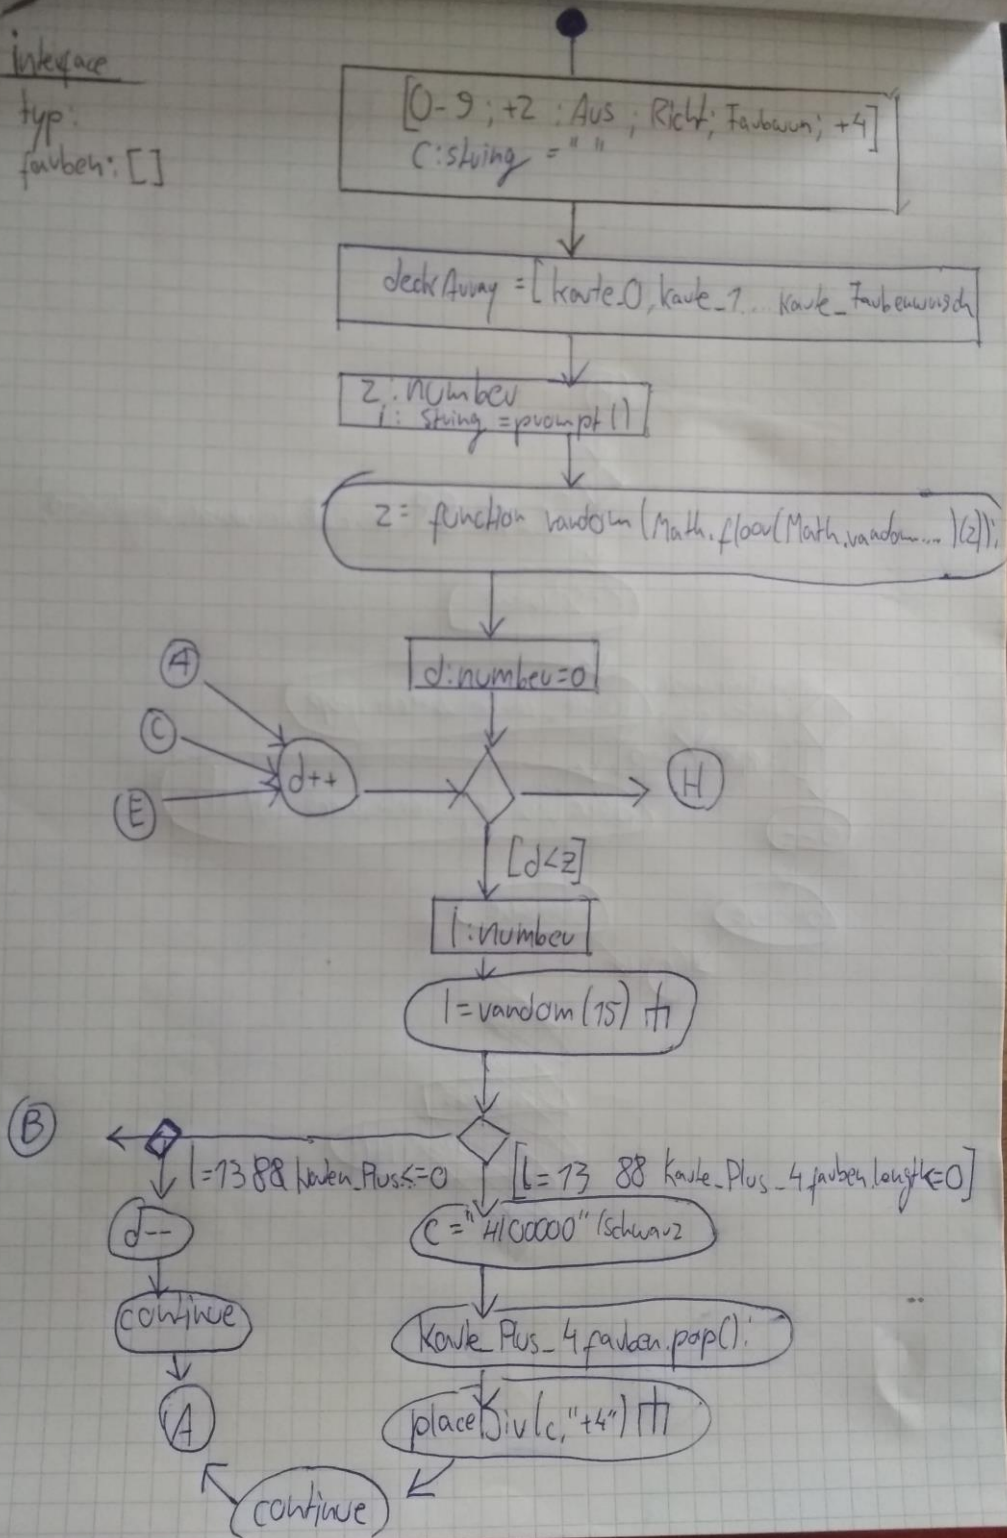 interface
typ:
farben: []
[0-9 ; +2 ; Aus ; Richt; Farbwun; +4]
C:string = " "
deckArray = [karte_0, karte_1... karte_Farbenwunsch
z: number
i: string = prompt()
z = function random (Math.floor(Math.random....)(z));
d:number=0
A
C
E
d++
H
[d<z]
l:number
l=random(15)
B
l=13 && Karten_Plus<=0
[l=13 && Karte_Plus_4.farben.length<=0]
d--
c="#00000"/schwarz
continue
Karte_Plus_4.farben.pop();
A
placeDiv(c,"+4")
continue